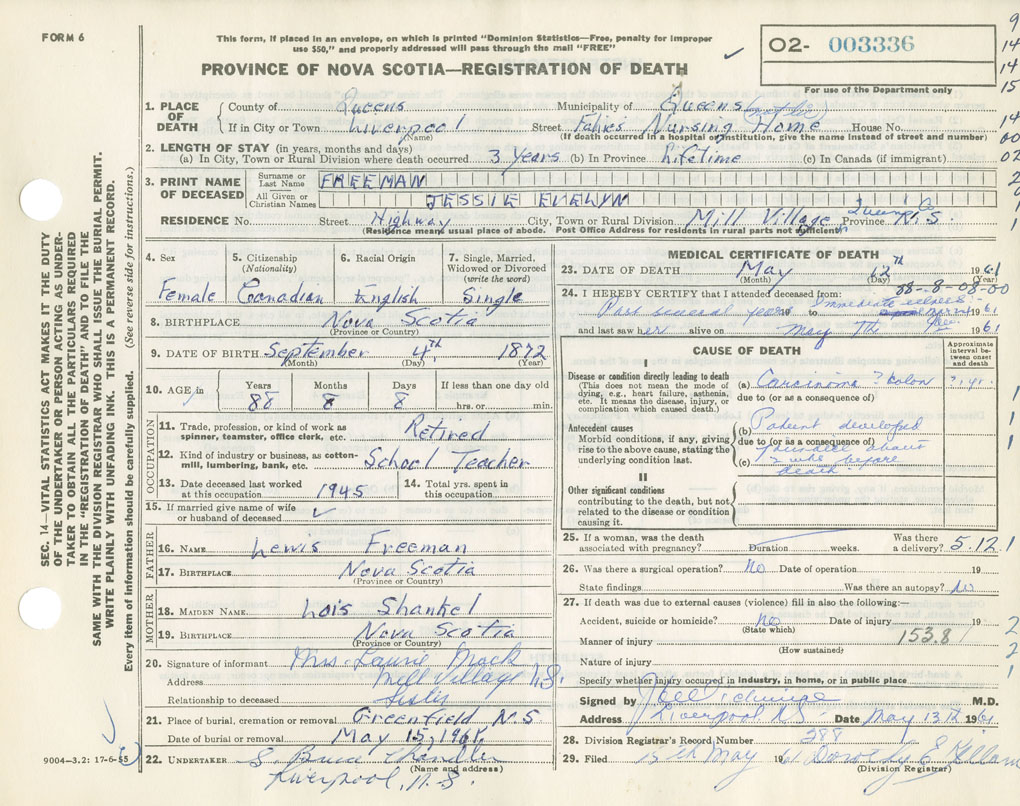 FORM 6
This form, if placed in an envelope, on which is printed "Dominion Statistics—Free, penalty for improper
use $50," and properly addressed will pass through the mail "FREE"
PROVINCE OF NOVA SCOTIA—REGISTRATION OF DEATH
O2- 003336
For use of the Department only
9
14
14
15
14
00
02
2
0
1
SEC. 14—VITAL STATISTICS ACT MAKES IT THE DUTY
OF THE UNDERTAKER OR PERSON ACTING AS UNDER-
TAKER TO OBTAIN ALL THE PARTICULARS REQUIRED
IN THE "REGISTRATION OF DEATH" AND TO FILE THE
SAME WITH THE DIVISION REGISTRAR WHO SHALL ISSUE THE BURIAL PERMIT.
WRITE PLAINLY WITH UNFADING INK. THIS IS A PERMANENT RECORD.
Every item of information should be carefully supplied. (See reverse side for instructions.)
1. PLACE OF DEATH
County of Queens Municipality of Queens
If in City or Town Liverpool Street Nursing Home House No.
(Name) (If death occurred in a hospital or institution, give the name instead of street and number)
2. LENGTH OF STAY (in years, months and days)
(a) In City, Town or Rural Division where death occurred 3 years (b) In Province Lifetime (c) In Canada (if immigrant)
3. PRINT NAME OF DECEASED
Surname or Last Name FREEMAN
All Given or Christian Names JESSIE EVELYN
RESIDENCE No. Street Highway City, Town or Rural Division Mill Village Queens Co Province N.S.
(Residence means usual place of abode. Post Office Address for residents in rural parts not sufficient)
4. Sex
Female
5. Citizenship (Nationality)
Canadian
6. Racial Origin
English
7. Single, Married, Widowed or Divorced (write the word)
Single
8. BIRTHPLACE Nova Scotia
(Province or Country)
9. DATE OF BIRTH September 4th, 1872
(Month) (Day) (Year)
10. AGE in
Years Months Days If less than one day old
88 8 8 hrs. or min.
OCCUPATION
11. Trade, profession, or kind of work as spinner, teamster, office clerk, etc. Retired
12. Kind of industry or business, as cotton-mill, lumbering, bank, etc. School Teacher
13. Date deceased last worked at this occupation 1945
14. Total yrs. spent in this occupation
15. If married give name of wife or husband of deceased
FATHER
16. NAME Lewis Freeman
17. BIRTHPLACE Nova Scotia
(Province or Country)
MOTHER
18. MAIDEN NAME Lois Shankel
19. BIRTHPLACE Nova Scotia
(Province or Country)
20. Signature of informant Mrs. Laurie Mack
Address Mill Village N.S.
Relationship to deceased Sister
21. Place of burial, cremation or removal Greenfield N.S.
Date of burial or removal May 15, 1961
22. UNDERTAKER S. Bruce Chandler
(Name and address)
Liverpool, N.S.
9004-3.2: 17-6-55
MEDICAL CERTIFICATE OF DEATH
23. DATE OF DEATH May 12th 1961
(Month) (Day) (Year)
88-8-08-00
24. I HEREBY CERTIFY that I attended deceased from:
Past several years 19 to 1961
and last saw her alive on May the 1961
CAUSE OF DEATH
Approximate interval between onset and death
I
Disease or condition directly leading to death
(This does not mean the mode of dying, e.g., heart failure, asthenia, etc. It means the disease, injury, or complication which caused death.)
(a) Carcinoma ? Colon ? 1 yr.
due to (or as a consequence of)
Antecedent causes
Morbid conditions, if any, giving rise to the above cause, stating the underlying condition last.
(b) Patient developed
due to (or as a consequence of)
(c) jaundice about
2 wks before
death
II
Other significant conditions
contributing to the death, but not related to the disease or condition causing it.
25. If a woman, was the death associated with pregnancy? Duration weeks. Was there a delivery? 5.12.1
26. Was there a surgical operation? No Date of operation 19
State findings Was there an autopsy? No
27. If death was due to external causes (violence) fill in also the following:—
Accident, suicide or homicide? No Date of injury 19
(State which)
Manner of injury 153.8
(How sustained)
Nature of injury
Specify whether injury occurred in industry, in home, or in public place
Signed by M.D.
Address Liverpool NS Date May 13th 1961
28. Division Registrar's Record Number 388
29. Filed 15th May 1961 Dorothy E Kellam
(Division Registrar)